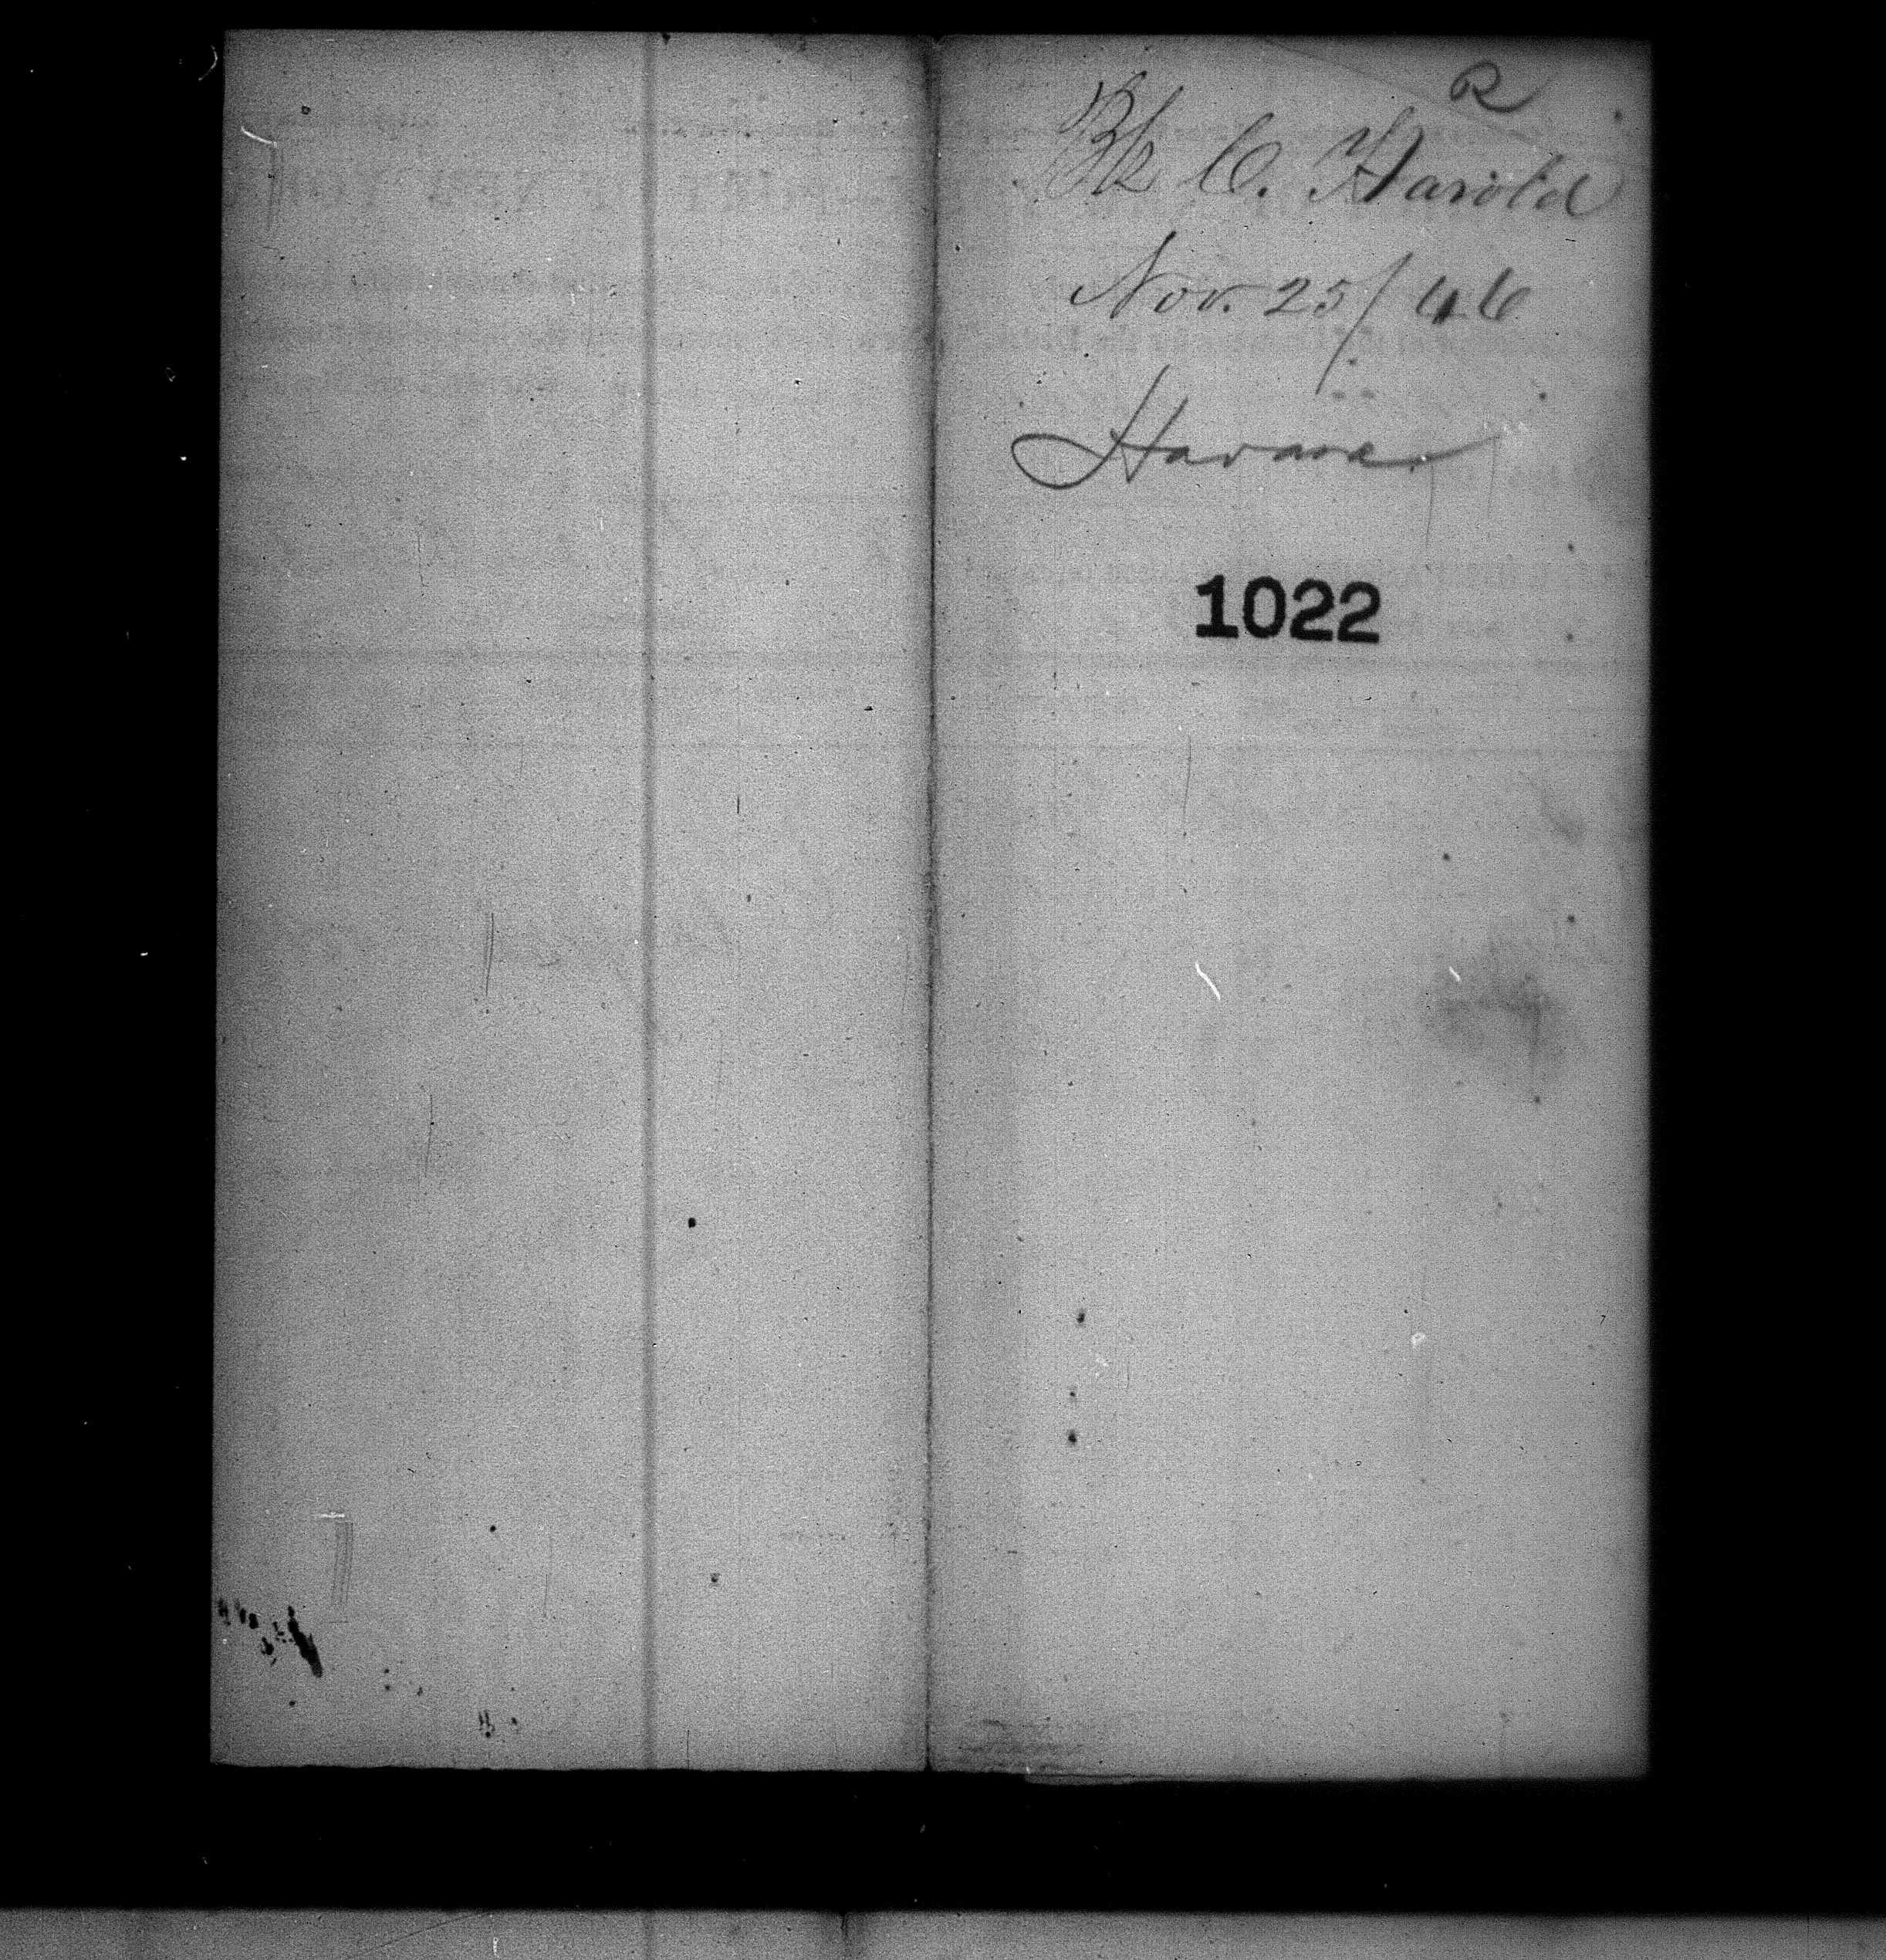 R
Bk C. Harold
Nov. 25/46
Havana
1022